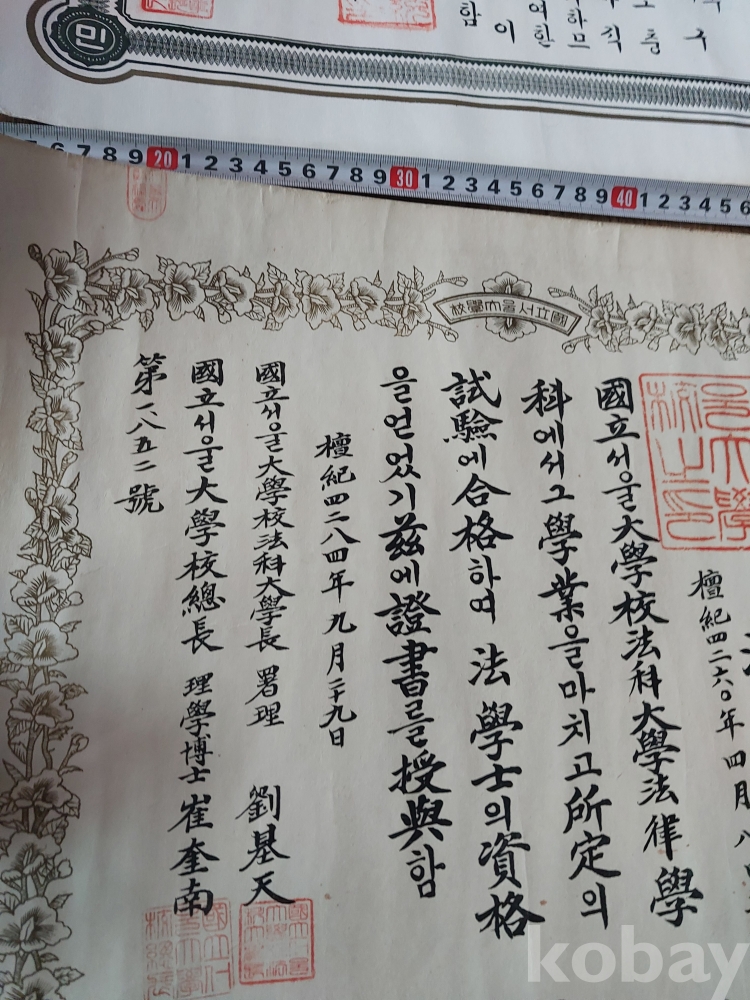 민
구
충
직
하므
여한
이
함
6 7 8 9 20 1 2 3 4 5 6 7 8 9 30 1 2 3 4 5 6 7 8 9 40 1 2 3 4 5 6
檀紀四二六〇年四月八日
國立서울大學校法科大學法律學
科에서그學業을마치고所定의
試驗에合格하여 法學士의資格
을얻었기茲에證書를授與함
檀紀四二八四年九月二十九日
國立서울大學校法科大學長 署理 劉基天
國立서울大學校總長 理學博士 崔奎南
第一八五二號
kobay